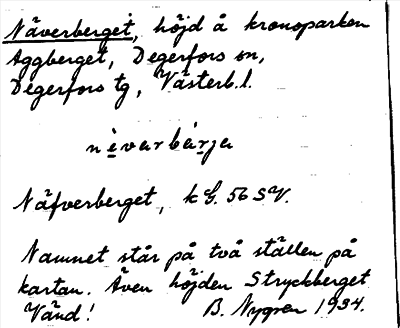 Näverberget, höjd å kronoparken
Aggberget, Degerfors sn,
Degerfors tg, Västerb.l.
nèvarbàrja
Näfverberget, kG. 56 SV.
Namnet står på två ställen på
kartan. Även höjden Stryckberget
Vänd! B. Nygren 1934.